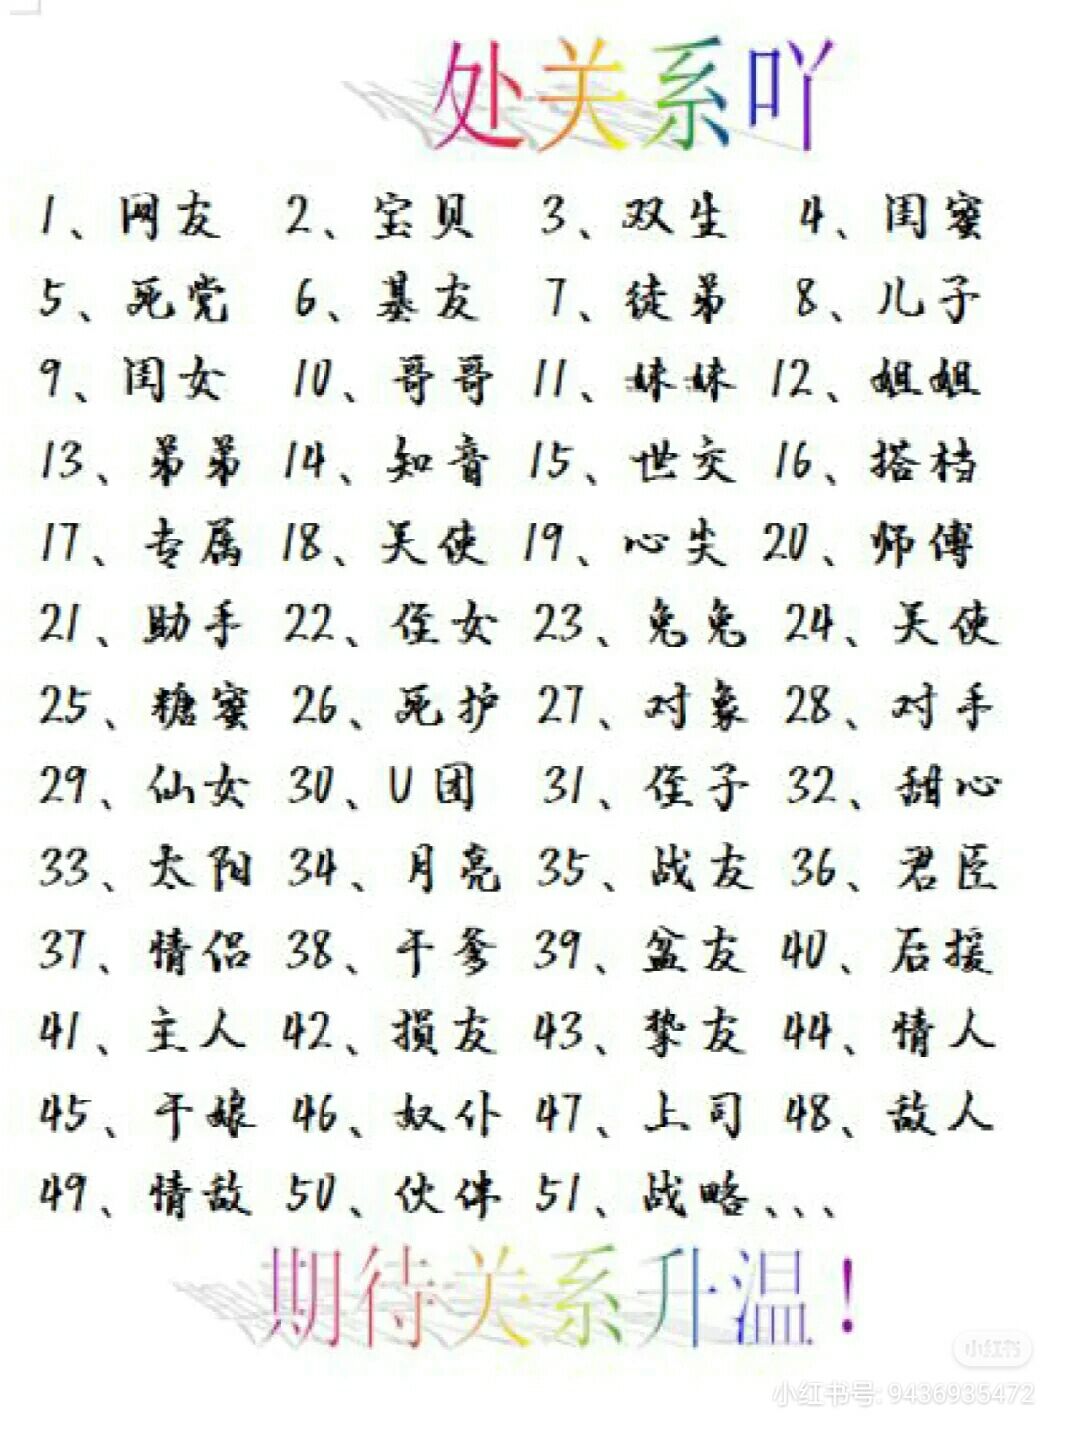 处关系吖
1、网友 2、宝贝 3、双生 4、闺蜜
5、死党 6、基友 7、徒弟 8、儿子
9、闺女 10、哥哥 11、妹妹 12、姐姐
13、弟弟 14、知音 15、世交 16、搭档
17、专属 18、天使 19、心尖 20、师傅
21、助手 22、侄女 23、兔兔 24、天使
25、糖蜜 26、死护 27、对象 28、对手
29、仙女 30、U团 31、侄子 32、甜心
33、太阳 34、月亮 35、战友 36、君臣
37、情侣 38、干爹 39、盆友 40、后援
41、主人 42、损友 43、挚友 44、情人
45、干娘 46、奴仆 47、上司 48、敌人
49、情敌 50、伙伴 51、战略、、、
期待关系升温！
小红书
小红书号: 9436935472